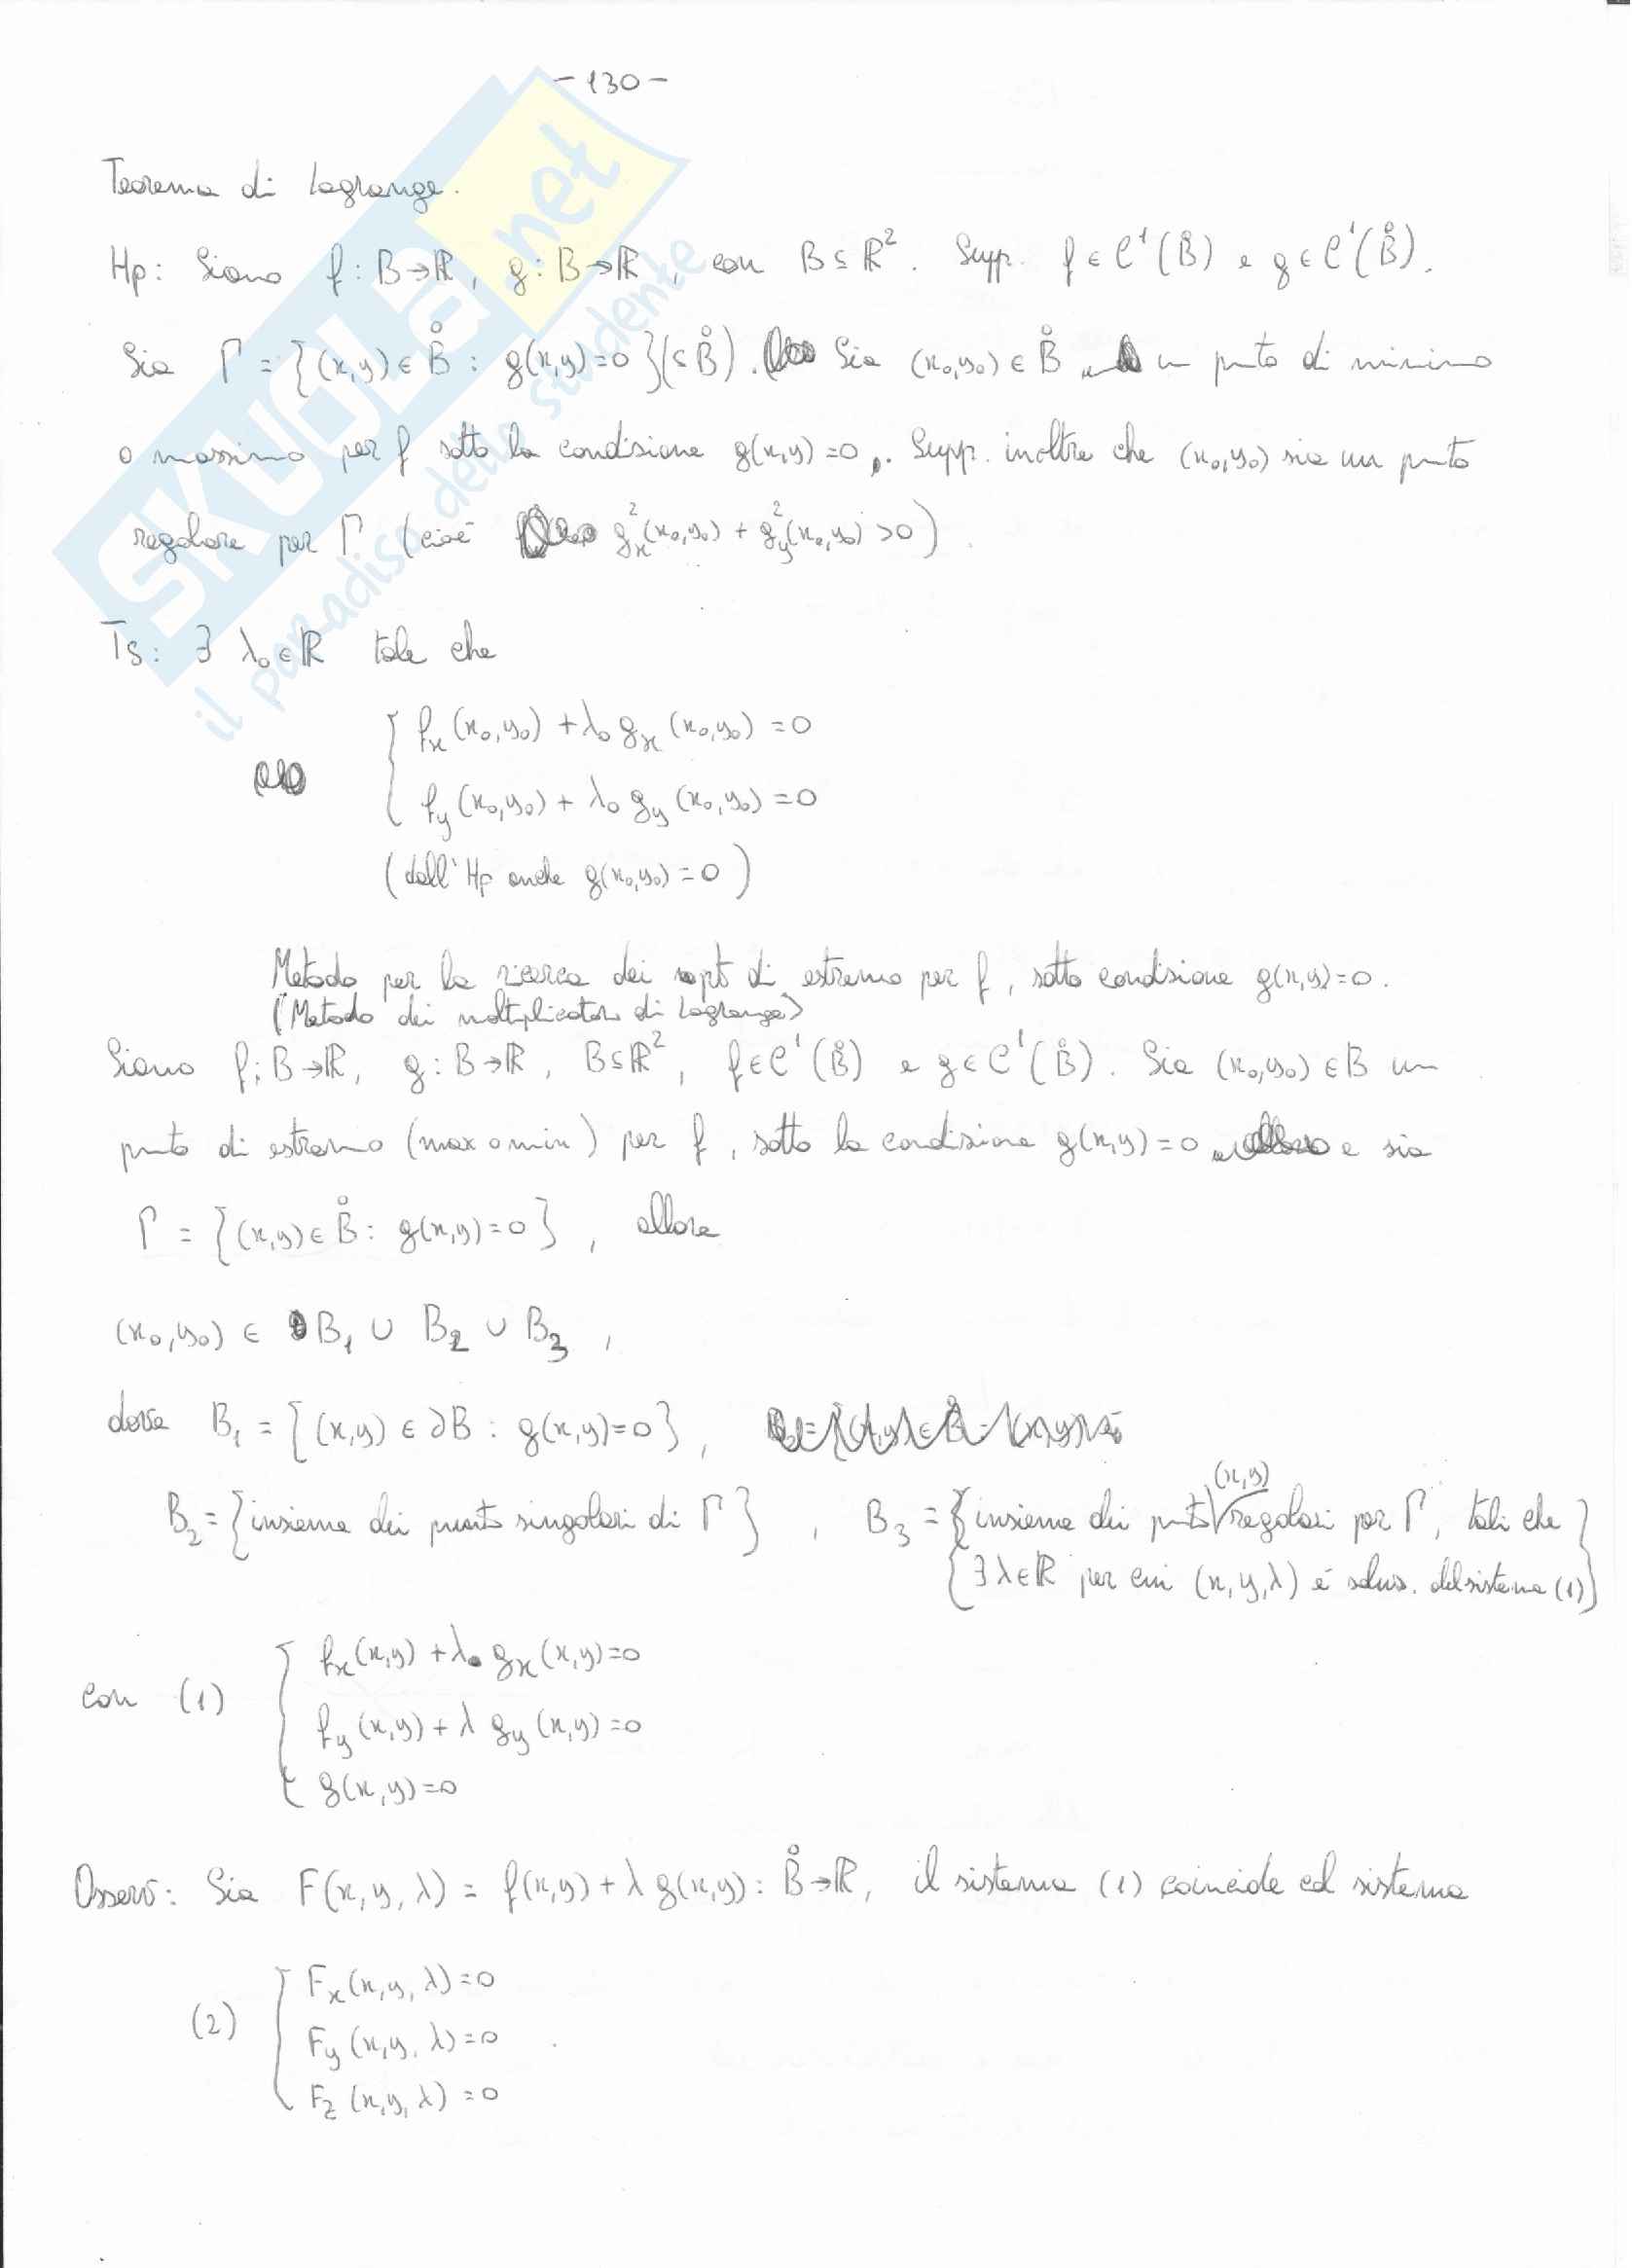 - 130 -
Teorema di Lagrange.
Hp: Siano f : B → ℝ, g : B → ℝ, con B ⊆ ℝ². Supp. f ∈ C¹(B̊) e g ∈ C¹(B̊).
Sia Γ = {(x,y) ∈ B̊ : g(x,y) = 0} (⊆ B̊). Sia (x₀,y₀) ∈ B̊ un punto di minimo
o massimo per f sotto la condizione g(x,y) = 0. Supp. inoltre che (x₀,y₀) sia un punto
regolare per Γ (cioè g²ₓ(x₀,y₀) + g²_y(x₀,y₀) > 0).
Ts: ∃ λ₀ ∈ ℝ tale che
{ fₓ(x₀,y₀) + λ₀ gₓ(x₀,y₀) = 0
f_y(x₀,y₀) + λ₀ g_y(x₀,y₀) = 0
(dall'Hp anche g(x₀,y₀) = 0)
Metodo per la ricerca dei pti di estremo per f, sotto condizione g(x,y) = 0.
(Metodo dei moltiplicatori di Lagrange)
Siano f : B → ℝ, g : B → ℝ, B ⊆ ℝ², f ∈ C¹(B̊) e g ∈ C¹(B̊). Sia (x₀,y₀) ∈ B un
punto di estremo (max o min) per f, sotto la condizione g(x,y) = 0 e sia
Γ = {(x,y) ∈ B̊ : g(x,y) = 0}, allora
(x₀,y₀) ∈ B₁ ∪ B₂ ∪ B₃,
dove B₁ = {(x,y) ∈ ∂B : g(x,y) = 0},
B₂ = {insieme dei punti singolari di Γ}, B₃ = {insieme dei punti (x,y) regolari per Γ, tali che
∃ λ ∈ ℝ per cui (x,y,λ) è soluz. del sistema (1)}
con (1) { fₓ(x,y) + λ gₓ(x,y) = 0
f_y(x,y) + λ g_y(x,y) = 0
g(x,y) = 0
Osserv: Sia F(x,y,λ) = f(x,y) + λ g(x,y) : B̊ → ℝ, il sistema (1) coincide col sistema
(2) { Fₓ(x,y,λ) = 0
F_y(x,y,λ) = 0
F_z(x,y,λ) = 0
SKUOLA.net
il paradiso dello studente